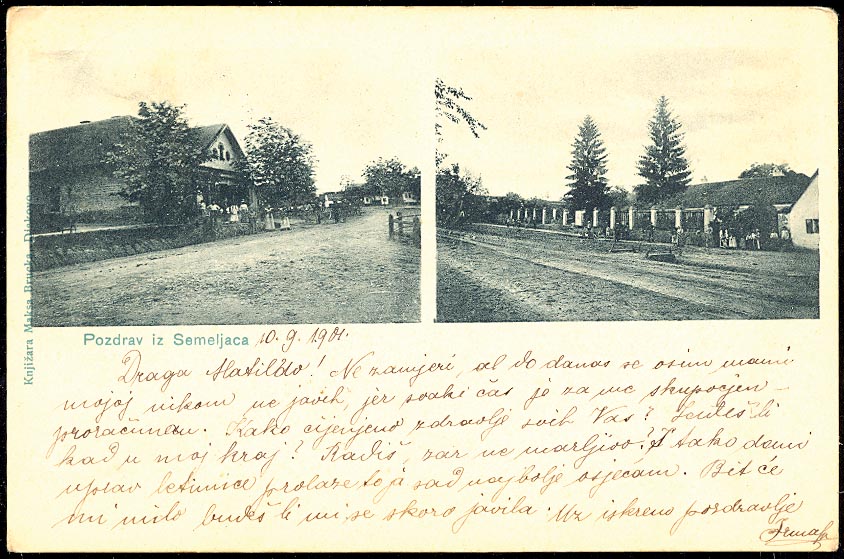 Knjižara Maksa Brucka, Djakovo
Pozdrav iz Semeljaca 10. 9. 1901.
Draga Matildo! Ne zamjeri, al do danas se osim mami
mojoj nikom ne javih, jer svaki čas je za me skupocjen
proračunan. Kako cijenjeno zdravlje svih Vas? Ideš li
kad u moj kraj? Radiš, zar ne marljivo? I tako dani
upravo letimice prolaze to ja sad najbolje osjećam. Bit će
mi milo budeš li mi se skoro javila. Uz iskreno pozdravlje
Irma